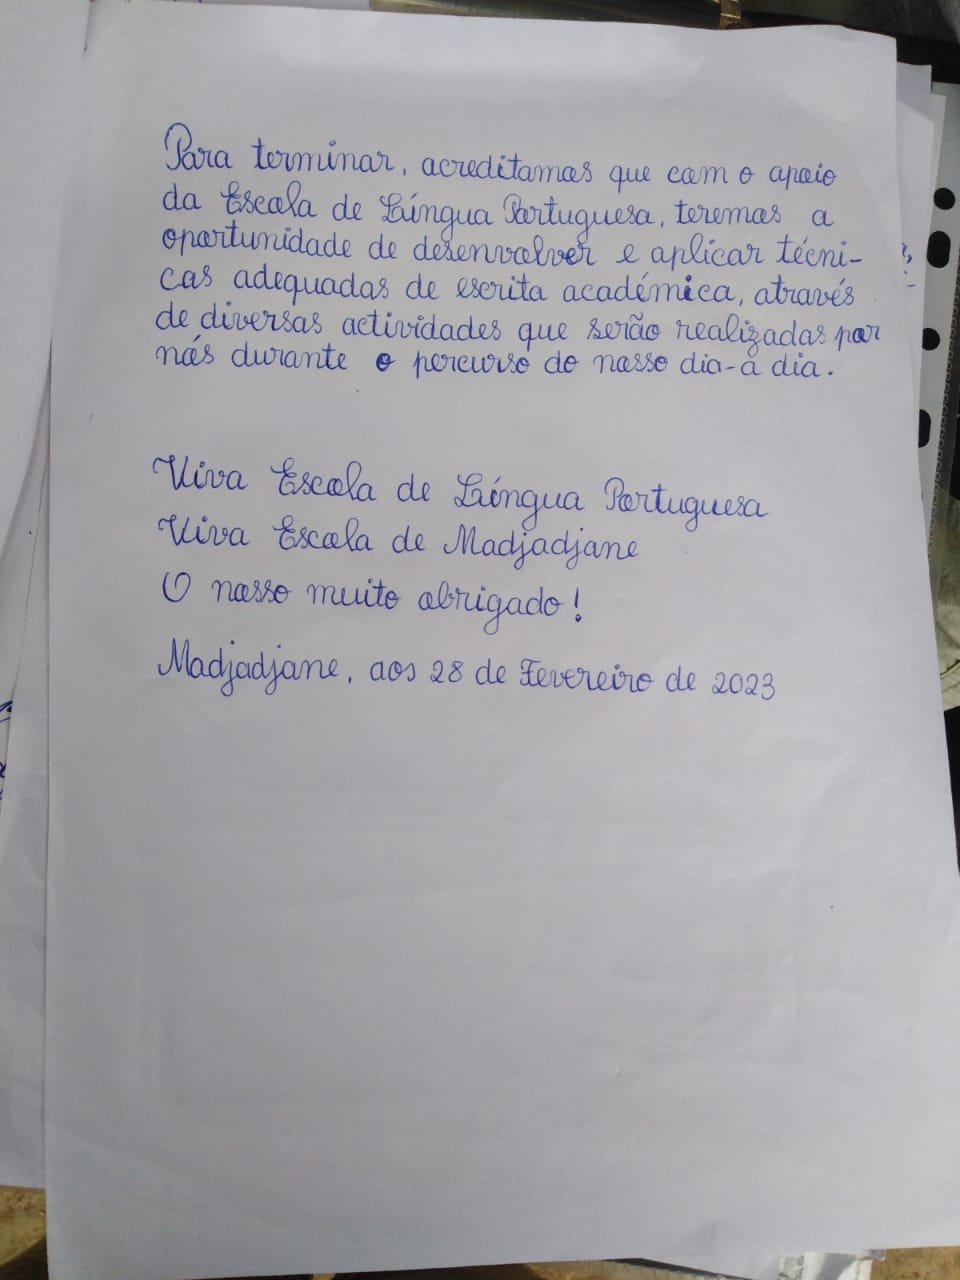 Para terminar, acreditamos que com o apoio
da Escola de Língua Portuguesa, teremos a
oportunidade de desenvolver e aplicar técni-
cas adequadas de escrita académica, através
de diversas actividades que serão realizadas por
nós durante o percurso do nosso dia-a dia.
Viva Escola de Língua Portuguesa
Viva Escola de Madjadjane
O nosso muito obrigado!
Madjadjane, aos 28 de Fevereiro de 2023